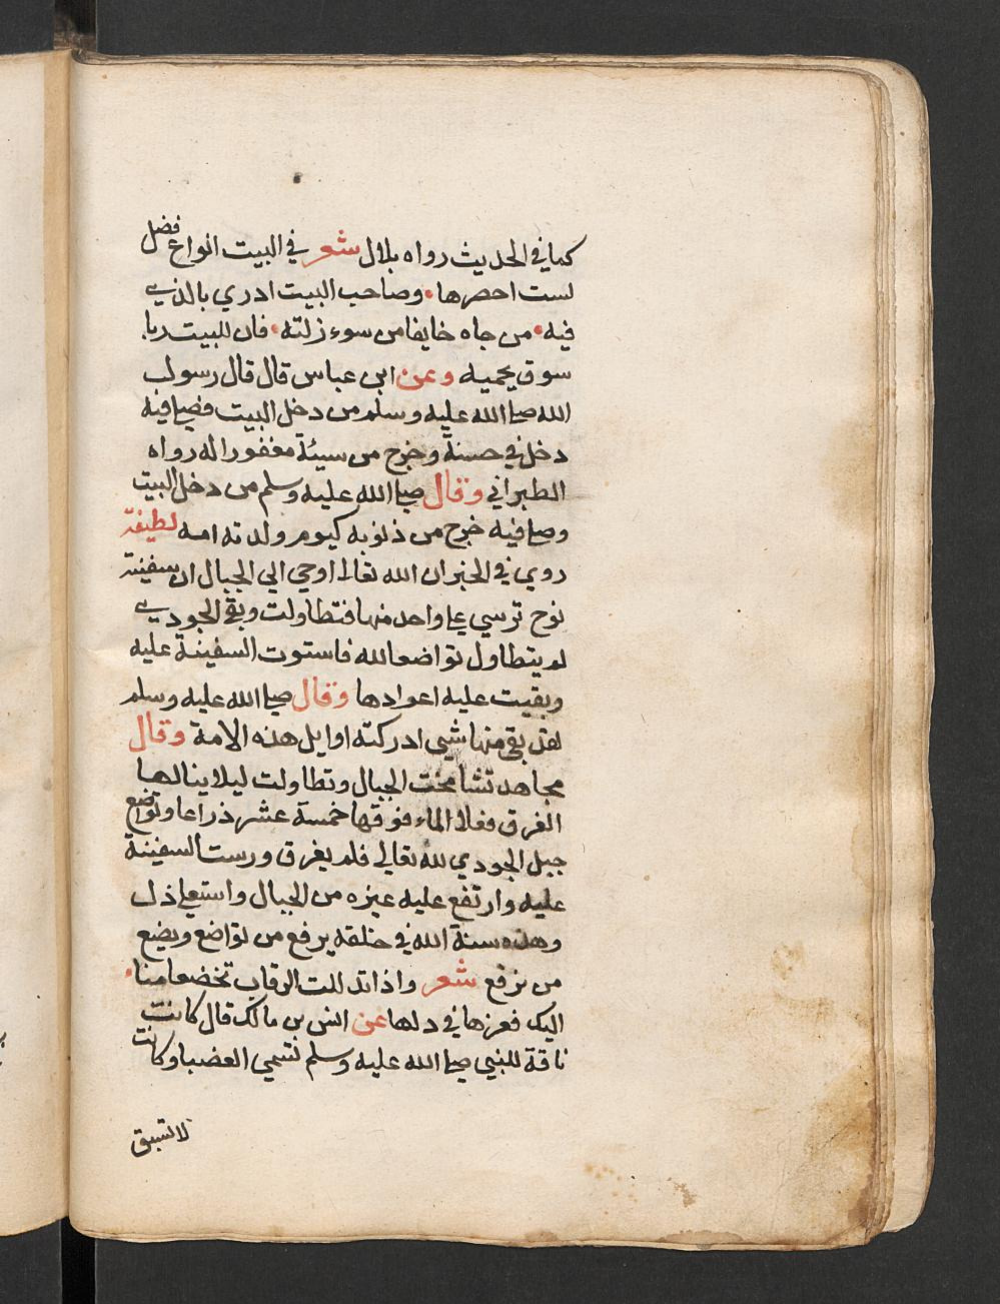 كما في الحديث رواه بلال شعر في البيت انواع فضل
لست احصرها • وصاحب البيت ادري بالذي
فيه • من جاه خايفا من سوء زلته • فان للبيت ربا
سوق يحميه وعن ابن عباس قال قال رسول
الله صلى الله عليه وسلم من دخل البيت فصلى فيه
دخل في حسنة وخرج من سيئة مغفورا له رواه
الطبراني وقال صلى الله عليه وسلم من دخل البيت
وصلى فيه خرج من ذنوبه كيوم ولدته امه لطيفة
روي في الخبر ان الله تعالى اوحي الي الجبال ان سفينة
نوح ترسي على واحد منها فتطاولت وبقي الجودي
لم يتطاول تواضعا لله فاستوت السفينة عليه
وبقيت عليه اعوادها وقال صلى الله عليه وسلم
لقد بقي منها شيى ادركته اوايل هذه الامة وقال
مجاهد تشامخت الجبال وتطاولت ليلا ينالها
الغرق فعلا الماء فوقها خمسة عشر ذراعا وتواضع
جبل الجودي لله تعالي فلم يغرق ورست السفينة
عليه وارتفع عليه غيره من الجبال واستعلى ذل
وهذه سنة الله في خلقه يرفع من تواضع ويضع
من ترفع شعر واذا تذللت الرقاب تخضعا منا •
اليك فعزها في دلها عن انس بن مالك قال كانت
ناقة للنبي صلى الله عليه وسلم تسمي العضبا وكانت
لا تسبق